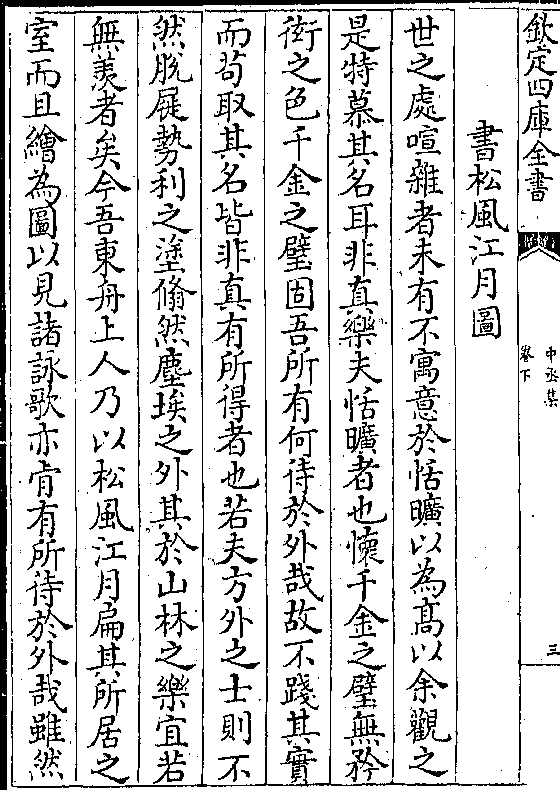 欽定四庫全書
中丞集
卷下
三
書松風江月圖
世之處喧雜者未有不寓意於恬曠以為髙以余觀之
是特慕其名耳非真樂夫恬曠者也懐千金之璧無矜
衒之色千金之璧固吾所有何待於外哉故不踐其實
而苟取其名皆非真有所得者也若夫方外之士則不
然脱屣勢利之塗翛然塵埃之外其於山林之樂宜若
無羨者矣今吾東舟上人乃以松風江月扁其所居之
室而且繪為圖以見諸詠歌亦肯有所待於外哉雖然